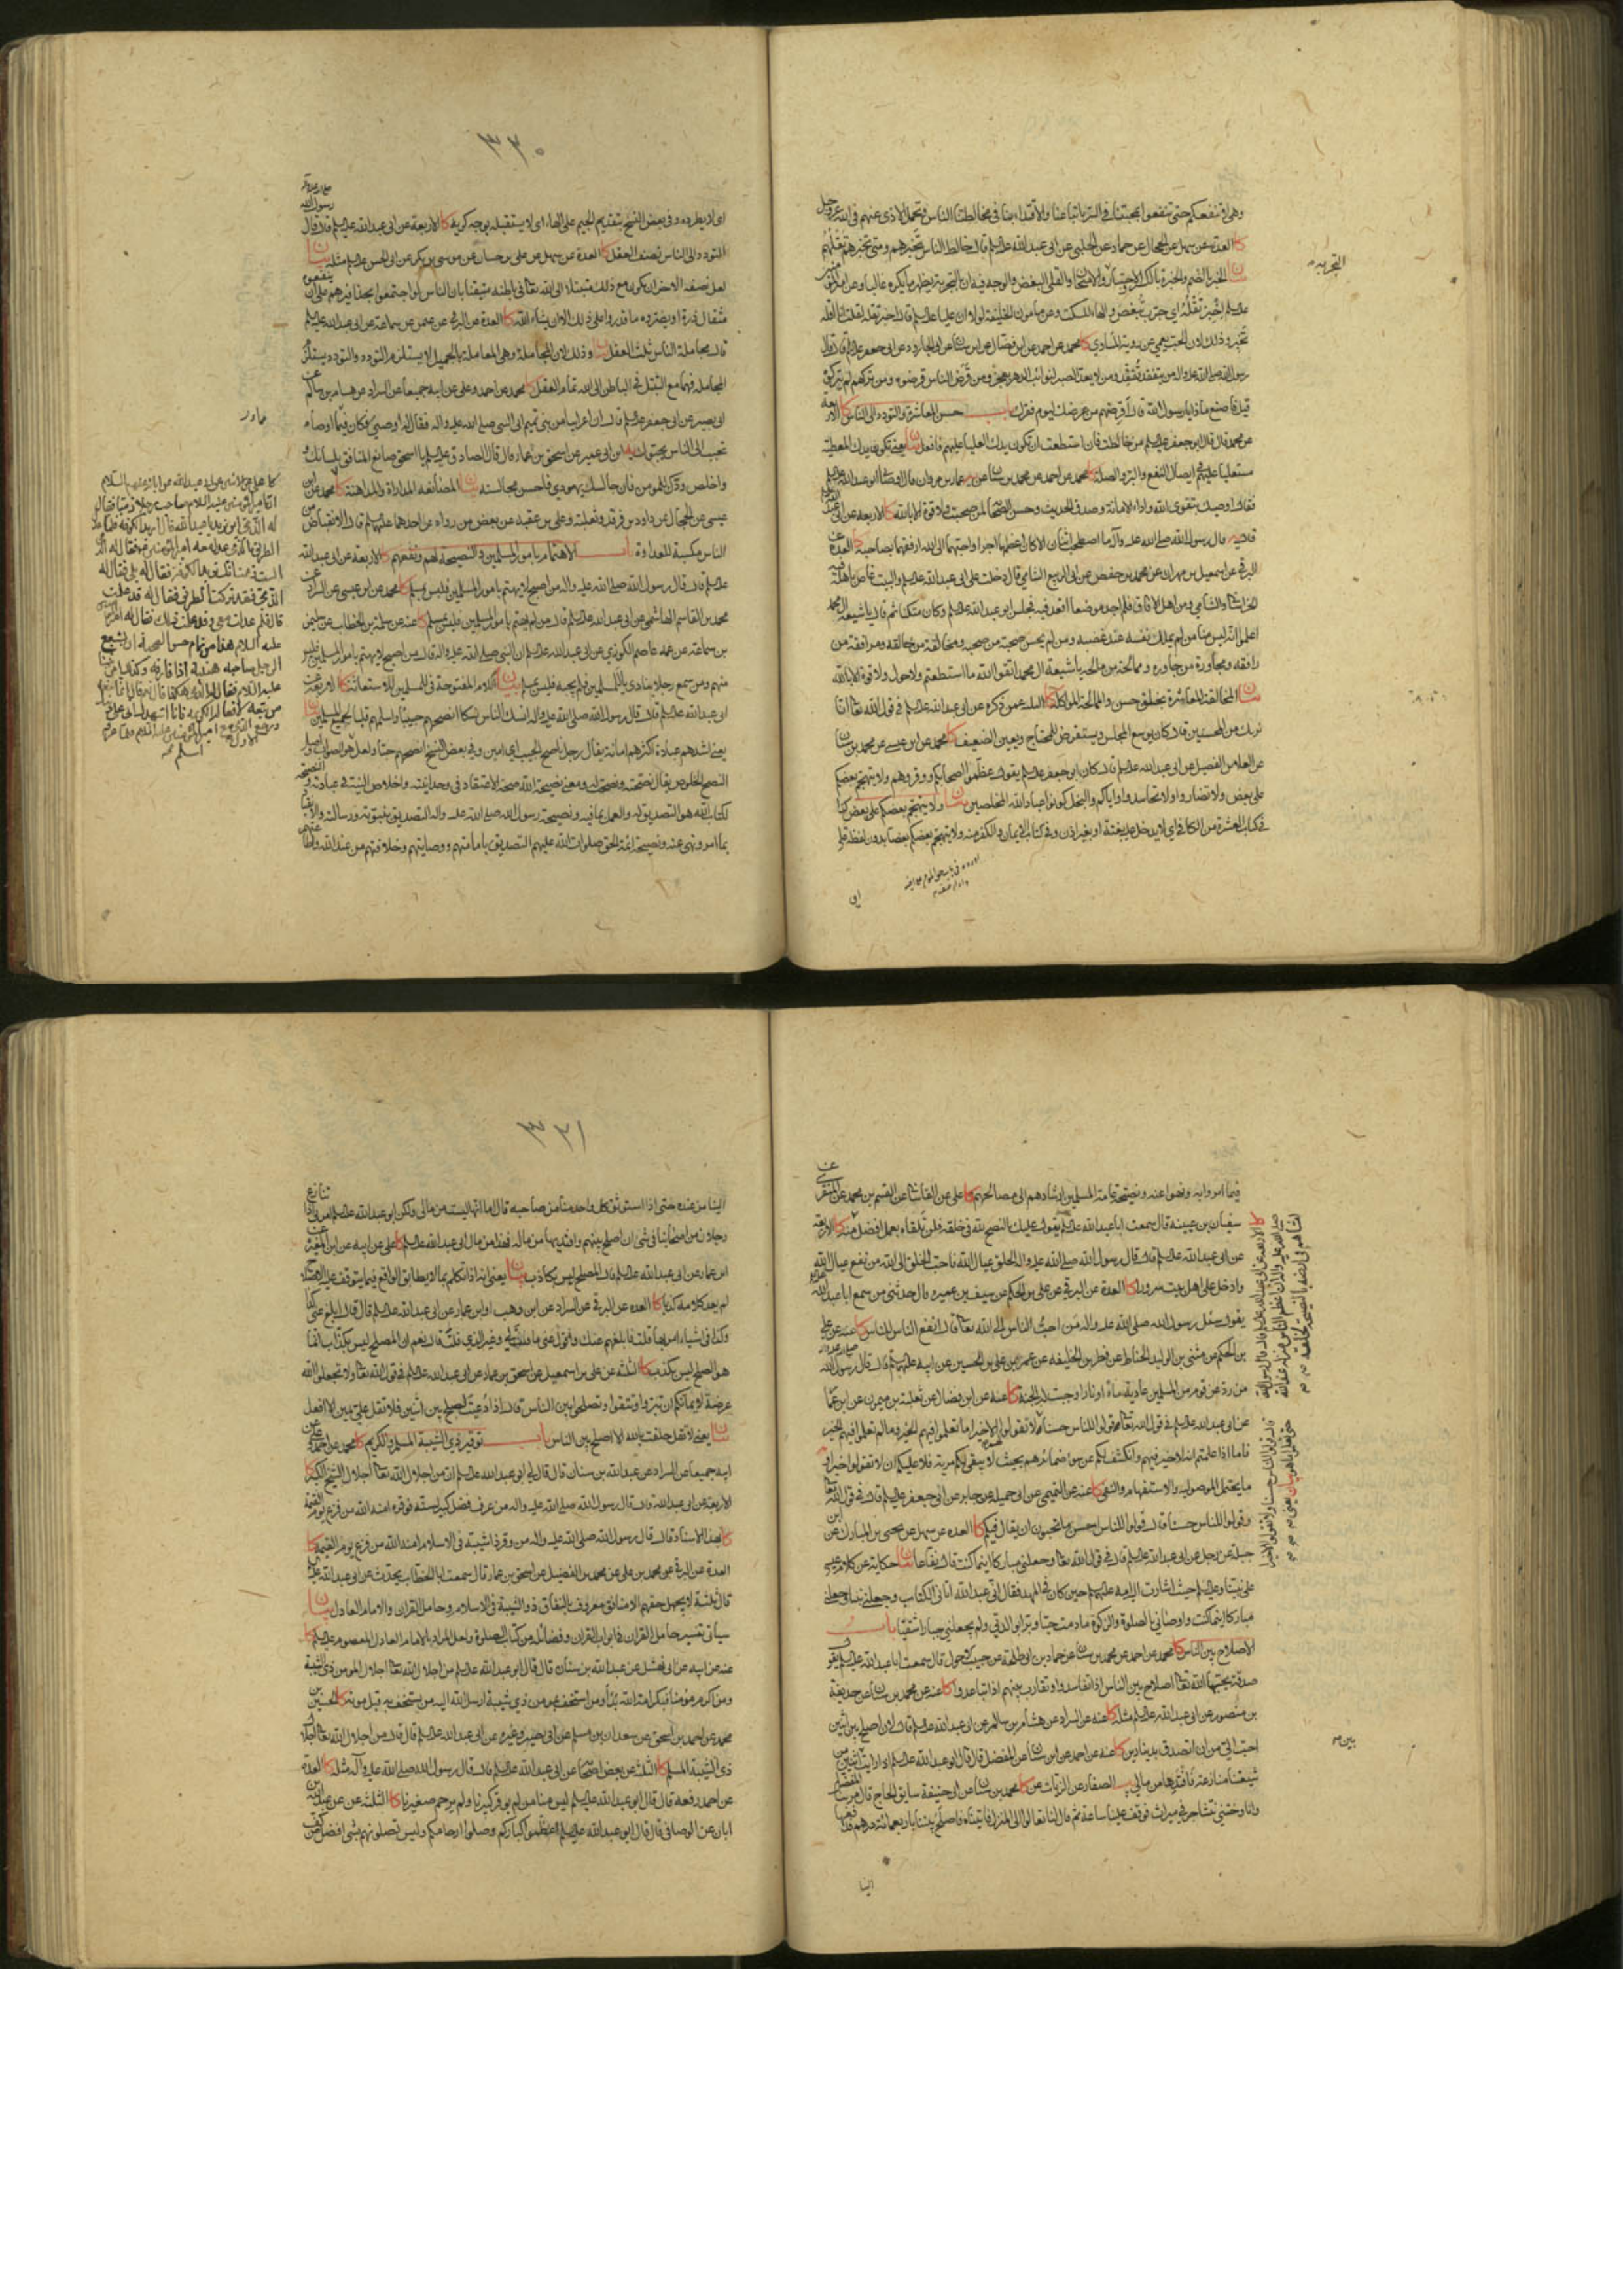 وهی لا تنفعکم حتی تنفعوا بمحبتنا فی السر باتباعنا والاقتداء بنا فی مخالطتنا الناس وتحمل الاذی عنهم فی الله عز وجل
کا العدة عن سهل عن الحجال عن حماد عن الحلبی عن ابی عبد الله علیه السلم قال خالط الناس تخبرهم ومتی تخبرهم تقلهم
بیان الخبر بالضم والخبرة بالکسر الاختبار والامتحان والقلی البغض والوجه فیه ان التجربة یظهر ما یکره غالبا وعن امیر المؤمنین
علیه السلم اخبر تقله ای جرب تبغض والهاء للسکت وعن مامون الخلیفة لولا ان علیا علیه السلم قال اخبر تقله لقلت انا اقله
تخبر وذلک لان الحب یعمی عن رویة المساوی کا محمد عن احمد عن ابن فضال عن ابن سنان عن ابی الجارود عن ابی جعفر علیه السلم قال قال
رسول الله صلی الله علیه واله من یتفقد یفقد ومن لا یعد الصبر لنوائب الدهر یعجز ومن قرض الناس قرضوه ومن ترکهم لم یترکوه
قیل فاصنع ماذا یا رسول الله قال اقرضهم من عرضک لیوم فقرک باب حسن المعاشرة والتودد الی الناس کا الاربعة
عن محمد قال قال ابو جعفر علیه السلم من خالطت فان استطعت ان تکون یدک العلیا علیهم فافعل بیان یعنی تکون یدک المعطیة
مستعلیا علیهم فی ایصال النفع والبر والصلة کا محمد عن احمد عن محمد بن سنان عن عمار بن مروان قال اوصانی ابو عبد الله علیه السلم
فقال اوصیک بتقوی الله واداء الامانة وصدق الحدیث وحسن الصحابة لمن صحبت ولا قوة الا بالله کا الاربعة عن ابی عبد الله
قال قال رسول الله صلی الله علیه وآله ما اصطحب اثنان الا کان اعظمهما اجرا واحبهما الی الله ارفقهما بصاحبه کا العدة عن
البرقی عن اسمعیل بن مهران عن محمد بن حفص عن ابی الربیع الشامی قال دخلت علی ابی عبد الله علیه السلم والبیت غاص باهله فیه
الخراسانی والشامی ومن اهل الافاق فلم اجد موضعا اقعد فیه فجلس ابو عبد الله علیه السلم وکان متکئا ثم قال یا شیعة ال محمد
اعلموا انه لیس منا من لم یملک نفسه عند غضبه ومن لم یحسن صحبة من صحبه ومخالقة من خالقه ومرافقة من
رافقه ومجاورة من جاوره وممالحة من مالحه یا شیعة ال محمد اتقوا الله ما استطعتم ولا حول ولا قوة الا بالله
بیان المخالقة المعاشرة بخلق حسن والممالحة المواکلة کا الثلثة عمن ذکره عن ابی عبد الله علیه السلم فی قول الله تعا انا
نریک من المحسنین قال کان یوسع المجلس ویستقرض للمحتاج ویعین الضعیف کا محمد عن ابن عیسی عن محمد بن سنان
عن العلا عن الفضیل عن ابی عبد الله علیه السلم قال کان ابو جعفر علیه السلم یقول عظموا اصحابکم ووقروهم ولا یتهجم بعضکم
علی بعض ولا تضاروا ولا تحاسدوا وایاکم والبخل کونوا عباد الله المخلصین بیان ولا یتهجم بعضکم علی بعض کذا
فی کتاب العشرة من الکافی ای لا یدخل علیه بغتة او بغیر اذن وفی کتاب الایمان والکفر منه ولا یتهجم بعضکم بعضا بدون لفظة علی
ای
التجربة
٣٢٠
ای لا یطرده وفی بعض النسخ بتقدیم الجیم علی الهاء ای لا یستقبله بوجه کریه کا الاربعة عن ابی عبد الله علیه السلم قال قال رسول الله
التودد الی الناس نصف العقل کا العدة عن سهل عن علی بن حسان عن موسی بن بکر عن ابی الحسن علیه السلم مثله بیان
لعل نصفه الاخر ان یکون مع ذلک متبتلا الی الله تعا فی باطنه متیقنا بان الناس لو اجتمعوا بحذافیرهم علی ان ینفعوه
مثقال ذرة او یضروه ما قدروا علی ذلک الا ان یشاء الله کا العدة عن البرقی عن عثمن عن سماعة عن ابی عبد الله علیه السلم
قال مجاملة الناس ثلث العقل بیان وذلک لان المجاملة وهی المعاملة بالجمیل لا یستلزم التودد والتودد یستلزم
المجاملة فهما مع التبتل فی الباطن الی الله تمام العقل کا محمد عن احمد وعلی عن ابیه جمیعا عن السراد عن هشام بن سالم عن
ابی بصیر عن ابی جعفر علیه السلم قال ان اعرابیا من بنی تمیم اتی النبی صلی الله علیه واله فقال له اوصنی فکان فیما اوصاه
تحبب الی الناس یحبوک ابن ابی عمیر عن اسحق بن عمار قال قال الصادق علیه السلم یا اسحق صانع المنافق بلسانک و
واخلص ودک للمومن فان جالسک یهودی فاحسن مجالسته بیان المصانعة المداراة والمداهنة کا محمد عن ابن
عیسی عن الحجال عن داود بن فرقد وثعلبة وعلی بن عقبة عن بعض من رواه عن احدهما علیهما السلم قال الانقباض من
الناس مکسبة للعداوة باب الاهتمام بامور المسلمین والنصیحة لهم ونفعهم کا الاربعة عن ابی عبد الله
علیه السلم قال قال رسول الله صلی الله علیه واله من اصبح لا یهتم بامور المسلمین فلیس بمسلم کا محمد عن ابن عیسی عن السراد عن
محمد بن القاسم الهاشمی عن ابی عبد الله علیه السلم قال من لم یهتم بامور المسلمین فلیس بمسلم کا عنه عن سلمة بن الخطاب عن سلیمن
بن سماعة عن عمه عاصم الکوزی عن ابی عبد الله علیه السلم ان النبی صلی الله علیه واله قال من اصبح لا یهتم بامور المسلمین فلیس
منهم ومن سمع رجلا ینادی یا للمسلمین فلم یجبه فلیس بمسلم بیان اللام المفتوحة فی للمسلمین للاستغاثة کا الاربعة عن
ابی عبد الله علیه السلم قال قال رسول الله صلی الله علیه واله انسک الناس نسکا انصحهم حبیبا واسلمهم قلبا لجمیع المسلمین بیان
یعنی اشدهم عبادة اکثرهم امانة یقال رجل ناصح الجیب ای امین وفی بعض النسخ انصحهم حبا ولعل هو الصواب واصل
النصح الخلوص یقال نصحته ونصحت له ومعنی نصیحة الله صحة الاعتقاد فی وحدانیته واخلاص النیة فی عبادته والنصیحة
لکتاب الله هو التصدیق له والعمل بما فیه ونصیحة رسول الله صلی الله علیه واله التصدیق بنبوته ورسالته والانقیاد
بما امر ونهی عنه ونصیحة ائمة الحق صلوات الله علیهم التصدیق بامامتهم ووصایتهم وخلافتهم من عند الله واطاعتهم
فیما امروا به ونهوا عنه ونصیحة عامة المسلمین ارشادهم الی مصالحهم کا علی عن القاسانی عن القسم بن محمد عن المنقری عن
سفیان بن عیینة قال سمعت ابا عبد الله علیه السلم یقول علیک بالنصح لله فی خلقه فلن تلقاه بعمل افضل منه کا الاربعة
عن ابی عبد الله علیه السلم قال قال رسول الله صلی الله علیه واله الخلق عیال الله فاحب الخلق الی الله من نفع عیال الله
وادخل علی اهل بیت سرورا کا العدة عن البرقی عن علی بن الحکم عن سیف بن عمیرة قال حدثنی من سمع ابا عبد الله
یقول سئل رسول الله صلی الله علیه واله من احب الناس الی الله تعا قال انفع الناس للناس کا عنه عن علی
بن الحکم عن مثنی بن الولید الحناط عن فطر بن الخلیفه عن عمر بن علی بن الحسین عن ابیه علیهما السلم قال قال رسول الله
من رد عن قوم من المسلمین عادیة ماء او نار اوجبت له الجنة کا عنه عن ابن فضال عن ثعلبة بن میمون عن ابن عمار
عن ابی عبد الله علیه السلم فی قول الله تعا وقولوا للناس حسنا ولا تقولوا الا خیرا ما تعلموا فیهم الخیر وما لم تعلموا فیهم الخیر
فاما اذا علمتم انه لا خیر فیهم وانکشف لکم عن سوء ضمائرهم بحیث لا یبقی لکم مریة فلا علیکم ان لا تقولوا خیرا و
ما یحتمل الموصولیة والاستفهام والنفی کا عنه عن التمیمی عن ابی جمیلة عن جابر عن ابی جعفر علیه السلم قال فی قول الله تعا
وقولوا للناس حسنا قال قولوا للناس احسن ما تحبون ان یقال فیکم کا العدة عن سهل عن یحیی بن المبارک عن ابن
جبلة عن رجل عن ابی عبد الله علیه السلم قال فی قول الله تعا وجعلنی مبارکا اینما کنت قال نفاعا بیان حکایة عن کلام عیسی
علی نبینا وعلیه السلم حیث اشارت الیه امه علیها السلم حین کان فی المهد فقال انی عبد الله اتانی الکتاب وجعلنی نبیا وجعلنی
مبارکا اینما کنت واوصانی بالصلوة والزکوة ما دمت حیا وبرا بوالدتی ولم یجعلنی جبارا شقیا باب
الاصلاح بین الناس کا محمد عن احمد عن محمد بن سنان عن حماد بن ابی طلحة عن حبیب الاحول قال سمعت ابا عبد الله علیه السلم یقول
صدقة یحبها الله تعا اصلاح بین الناس اذا تفاسدوا وتقارب بینهم اذا تباعدوا کا عنه عن محمد بن سنان عن حذیفة
بن منصور عن ابی عبد الله علیه السلم مثله کا عنه عن السراد عن هشام بن سالم عن ابی عبد الله علیه السلم قال لان اصلح بین اثنین
احب الی من ان اتصدق بدینارین کا عنه عن احمد عن ابن سنان عن المفضل قال قال ابو عبد الله علیه السلم اذا رایت بین اثنین من
شیعتنا منازعة فافتدها من مالی یب الصفار عن الزیات عن کا محمد بن سنان عن ابی حنیفة سابق الحاج قال مر بنا المفضل
وانا وختنی نتشاجر فی میراث فوقف علینا ساعة ثم قال لنا تعالوا الی المنزل فاتیناه فاصلح بیننا باربعمائة درهم فدفعها
الینا
بین
٣٢١
الینا من عنده حتی اذا استوثق کل واحد منا من صاحبه قال اما انها لیست من مالی ولکن ابو عبد الله علیه السلم امرنی اذا تنازع
رجلان من اصحابنا فی شئ ان اصلح بینهم وافتدیها من ماله فهذا من مال ابی عبد الله علیه السلم کا علی عن ابیه عن ابن المغیرة عن
ابن عمار عن ابی عبد الله علیه السلم قال المصلح لیس بکاذب بیان یعنی انه اذا تکلم بما لا یطابق الواقع فیما یتوقف علیه الاصلاح
لم یعد کلامه کذبا کا العدة عن البرقی عن السراد عن ابن وهب او ابن عمار عن ابی عبد الله علیه السلم قال قال ابلغ عنی کذا
وکذا فی اشیاء امر بها قلت فابلغهم عنک واقول عنی ما قلت لی وغیر الذی قلت قال نعم ان المصلح لیس بکذاب انما
هو الصلح لیس بکذب کا الثلثة عن علی بن اسمعیل عن اسحق بن عمار عن ابی عبد الله علیه السلم فی قول الله تعا ولا تجعلوا الله
عرضة لایمانکم ان تبروا وتتقوا وتصلحوا بین الناس قال اذا دعیت لصلح بین اثنین فلا تقل علی یمین الا افعل
بیان یعنی لا تقل حلفت بالله الا اصلح بین الناس باب توقیر ذی الشیبة المسلم والکریم کا محمد عن احمد وعلی عن
ابیه جمیعا عن السراد عن عبد الله بن سنان قال قال لی ابو عبد الله علیه السلم ان من اجلال الله تعا اجلال الشیخ الکبیر کا
الاربعة عن ابی عبد الله قال قال رسول الله صلی الله علیه واله من عرف فضل کبیر لسنه فوقره امنه الله من فزع یوم القیمة
کا بهذا الاسناد قال قال رسول الله صلی الله علیه واله من وقر ذا شیبة فی الاسلام امنه الله من فزع یوم القیمة کا
العدة عن البرقی عن محمد بن علی عن محمد بن الفضیل عن اسحق بن عمار قال سمعت ابا الخطاب یحدث عن ابی عبد الله علیه السلم
قال ثلثة لا یجهل حقهم الا منافق معروف بالنفاق ذو الشیبة فی الاسلام وحامل القران والامام العادل بیان
سیاتی تفسیر حامل القران فی ابواب القران وفضائله من کتاب الصلوة ولعل المراد بالامام العادل المعصوم علیه السلم کا
عنه عن ابیه عن ابی نهشل عن عبد الله بن سنان قال قال ابو عبد الله علیه السلم من اجلال الله تعا اجلال المومن ذی الشیبة
ومن اکرم مومنا فبکرامة الله بدأ ومن استخف بمومن ذی شیبة ارسل الله الیه من یستخف به قبل موته کا الحسین بن
محمد عن احمد بن اسحق عن سعدان بن مسلم عن ابی بصیر وغیره عن ابی عبد الله علیه السلم قال قال من اجلال الله تعا اجلال
ذی الشیبة المسلم کا الثلثة عن بعض اصحابنا عن ابی عبد الله علیه السلم قال قال رسول الله صلی الله علیه وآله مثله کا العدة
عن احمد رفعه قال قال ابو عبد الله علیه السلم لیس منا من لم یوقر کبیرنا ولم یرحم صغیرنا کا الثلثة عن عبد الله بن
ابان عن الوصافی قال قال ابو عبد الله علیه السلم عظموا کبارکم وصلوا ارحامکم ولیس تصلونهم بشئ افضل من کف